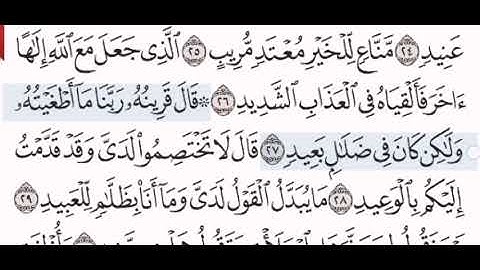 عَنِيدٍ ٢٤ مَّنَّاعٍ لِّلْخَيْرِ مُعْتَدٍ مُّرِيبٍ ٢٥ الَّذِى جَعَلَ مَعَ اللَّهِ إِلَٰهًا
ءَاخَرَ فَأَلْقِيَاهُ فِى الْعَذَابِ الشَّدِيدِ ٢٦ * قَالَ قَرِينُهُۥ رَبَّنَا مَآ أَطْغَيْتُهُۥ
وَلَٰكِن كَانَ فِى ضَلَٰلٍۭ بَعِيدٍ ٢٧ قَالَ لَا تَخْتَصِمُوا۟ لَدَىَّ وَقَدْ قَدَّمْتُ
إِلَيْكُم بِالْوَعِيدِ ٢٨ مَا يُبَدَّلُ الْقَوْلُ لَدَىَّ وَمَآ أَنَا۠ بِظَلَّٰمٍ لِّلْعَبِيدِ ٢٩